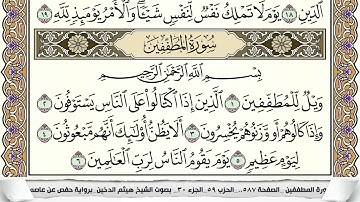 ٱلدِّينِ ١٨ يَوْمَ لَا تَمْلِكُ نَفْسٌ لِّنَفْسٍ شَيْـًٔا ۖ وَٱلْأَمْرُ يَوْمَئِذٍ لِّلَّهِ ١٩
سُورَةُ المُطَفِّفِينَ
بِسْمِ ٱللَّهِ ٱلرَّحْمَٰنِ ٱلرَّحِيمِ
وَيْلٌ لِّلْمُطَفِّفِينَ ١ ٱلَّذِينَ إِذَا ٱكْتَالُوا۟ عَلَى ٱلنَّاسِ يَسْتَوْفُونَ ٢
وَإِذَا كَالُوهُمْ أَو وَّزَنُوهُمْ يُخْسِرُونَ ٣ أَلَا يَظُنُّ أُو۟لَٰٓئِكَ أَنَّهُم مَّبْعُوثُونَ ٤
لِيَوْمٍ عَظِيمٍ ٥ يَوْمَ يَقُومُ ٱلنَّاسُ لِرَبِّ ٱلْعَٰلَمِينَ ٦
رة المطففين .. الصفحة ٥٨٧... الحزب ٥٩ .الجزء ٣٠.. بصوت الشيخ هيثم الدخين برواية حفص عن عاصم